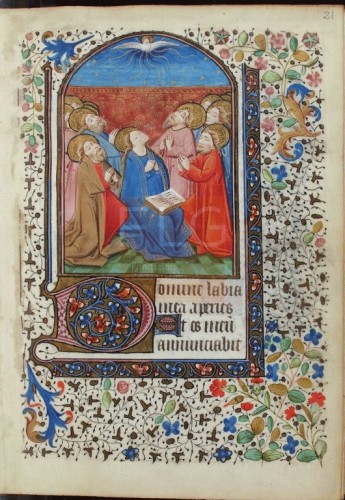 21
Domine labia
mea aperies
Et os meu
annunciabit